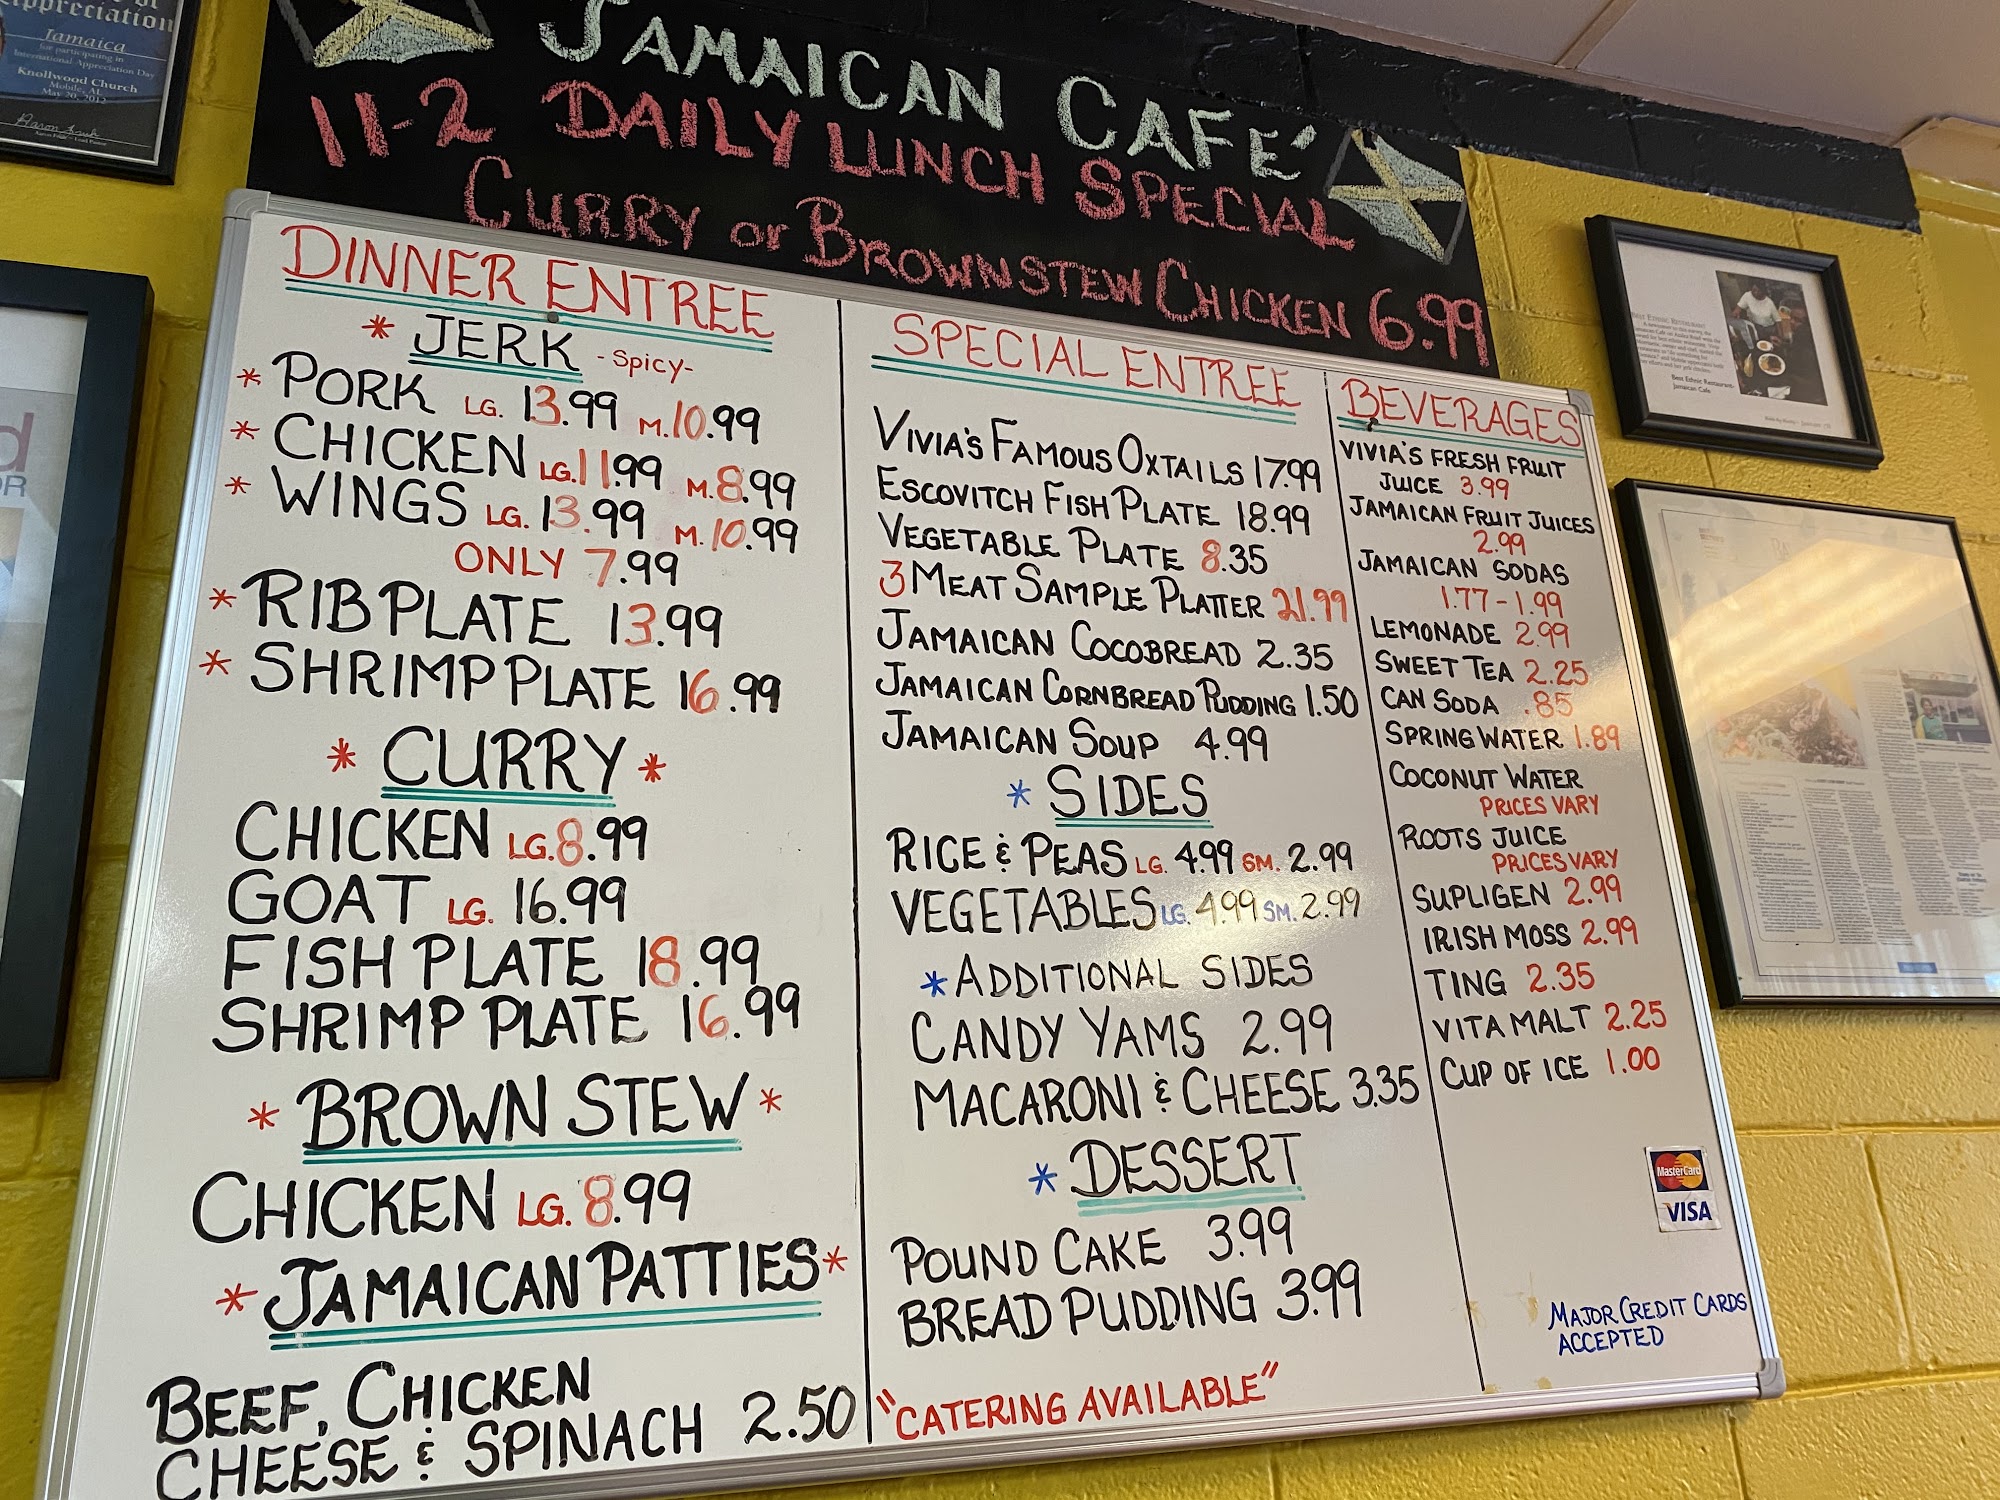 ppreciation
Jamaica
for participating in
International Appreciation Day
Knollwood Church
Mobile, AL
May 20, 2012
JAMAICAN CAFÉ
11-2 DAILY LUNCH SPECIAL
CURRY or BROWNSTEW CHICKEN 6.99
DINNER ENTREE
* JERK -SPICY-
* PORK LG. 13.99 M.10.99
* CHICKEN LG.11.99 M.8.99
* WINGS LG. 13.99 M.10.99
ONLY 7.99
* RIB PLATE 13.99
* SHRIMP PLATE 16.99
* CURRY *
CHICKEN LG.8.99
GOAT LG. 16.99
FISH PLATE 18.99
SHRIMP PLATE 16.99
* BROWN STEW *
CHICKEN LG. 8.99
* JAMAICAN PATTIES *
BEEF, CHICKEN
CHEESE & SPINACH 2.50
SPECIAL ENTREE
VIVIA'S FAMOUS OXTAILS 17.99
ESCOVITCH FISH PLATE 18.99
VEGETABLE PLATE 8.35
3 MEAT SAMPLE PLATTER 21.99
JAMAICAN COCOBREAD 2.35
JAMAICAN CORNBREAD PUDDING 1.50
JAMAICAN SOUP 4.99
* SIDES
RICE & PEAS LG. 4.99 SM. 2.99
VEGETABLES LG. 4.99 SM. 2.99
* ADDITIONAL SIDES
CANDY YAMS 2.99
MACARONI & CHEESE 3.35
* DESSERT
POUND CAKE 3.99
BREAD PUDDING 3.99
"CATERING AVAILABLE"
BEVERAGES
VIVIA'S FRESH FRUIT
JUICE 3.99
JAMAICAN FRUIT JUICES
2.99
JAMAICAN SODAS
1.77-1.99
LEMONADE 2.99
SWEET TEA 2.25
CAN SODA .85
SPRING WATER 1.89
COCONUT WATER
PRICES VARY
ROOTS JUICE
PRICES VARY
SUPLIGEN 2.99
IRISH MOSS 2.99
TING 2.35
VITA MALT 2.25
CUP OF ICE 1.00
MasterCard
VISA
MAJOR CREDIT CARDS
ACCEPTED
Best Ethnic Restaurant-
Jamaican Cafe